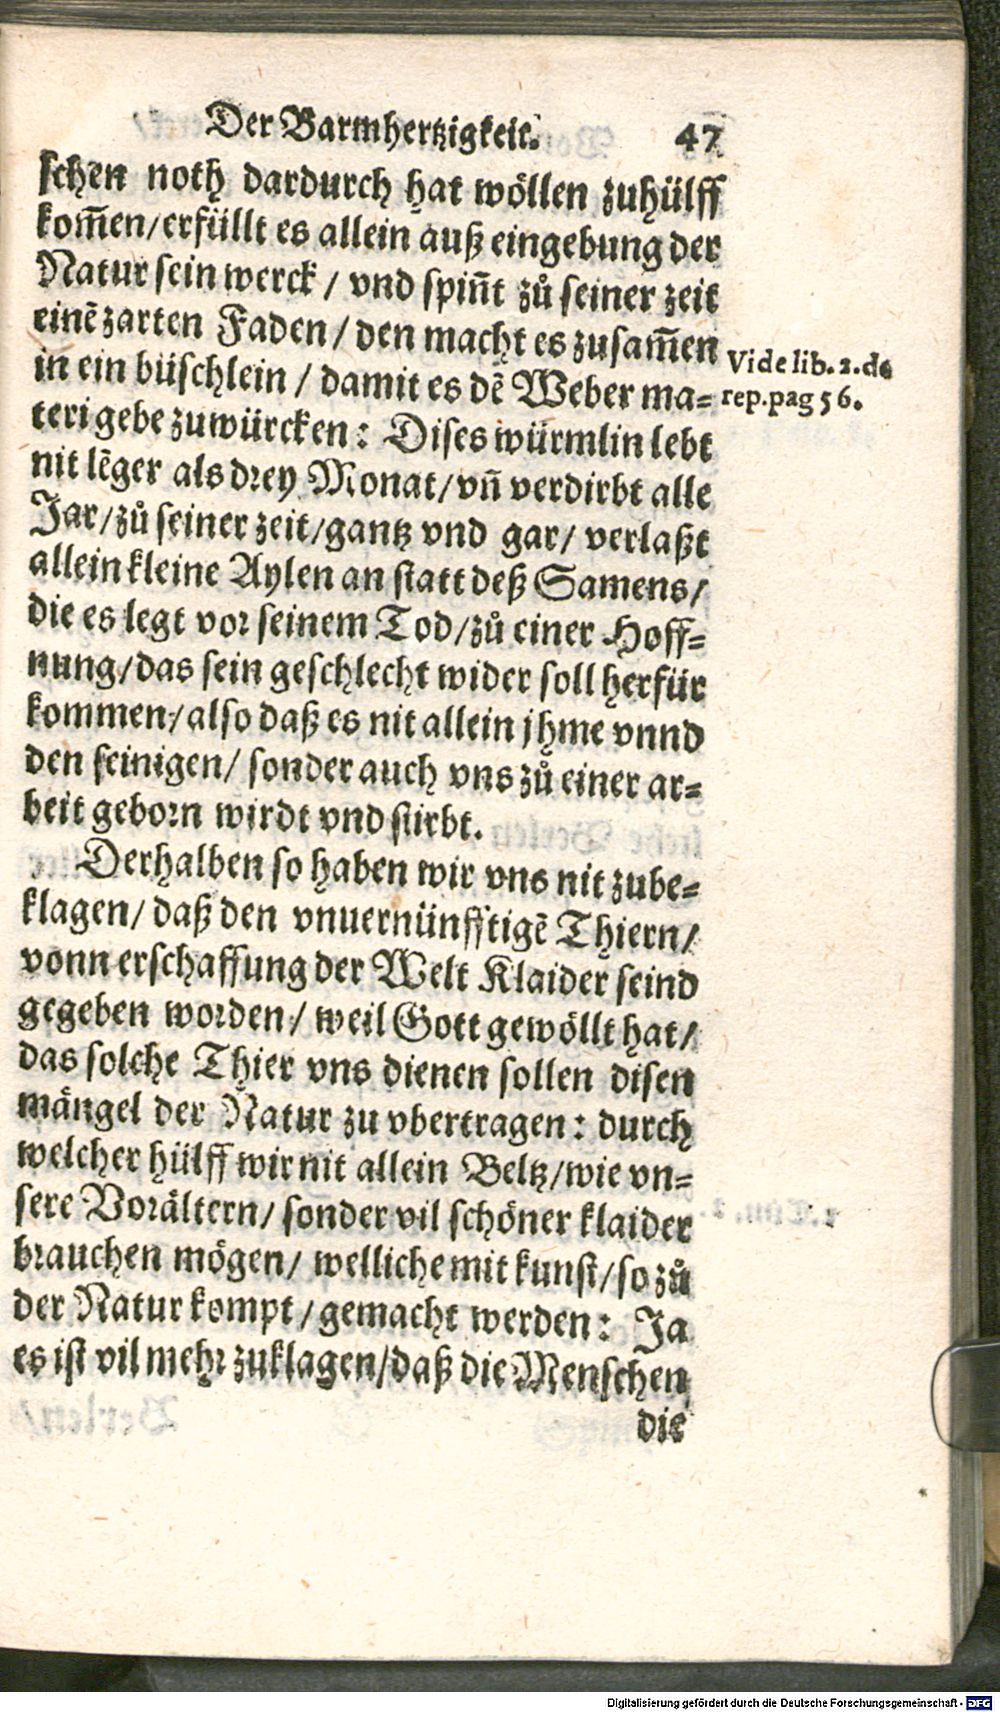 Der Barmhertzigkeit. 47
schen noth dardurch hat wöllen zuhülff
kom̃en/erfüllt es allein auß eingebung der
Natur sein werck / vnd spiñt zů seiner zeit
einẽ zarten Faden / den macht es zusam̃en
in ein büschlein / damit es dẽ Weber ma-
Vide lib. 2. de
rep. pag 56.
teri gebe zuwürcken: Dises würmlin lebt
nit lẽger als drey Monat/vñ verdirbt alle
Jar/zů seiner zeit/gantz vnd gar/ verlaßt
allein kleine Aylen an statt deß Samens/
die es legt vor seinem Tod/zů einer Hoff-
nung/das sein geschlecht wider soll herfür
kommen/also daß es nit allein jhme vnnd
den seinigen/ sonder auch vns zů einer ar-
beit geborn wirdt vnd stirbt.
Derhalben so haben wir vns nit zube-
klagen/ daß den vnuernünfftigẽ Thiern/
vonn erschaffung der Welt Klaider seind
gegeben worden/ weil Gott gewöllt hat/
das solche Thier vns dienen sollen disen
mängel der Natur zu vbertragen: durch
welcher hülff wir nit allein Beltz/wie vn-
sere Vorältern/ sonder vil schöner klaider
brauchen mögen/ welliche mit kunst/so zů
der Natur kompt/gemacht werden: Ja
es ist vil mehr zuklagen/daß die Menschen
die
Digitalisierung gefördert durch die Deutsche Forschungsgemeinschaft - DFG